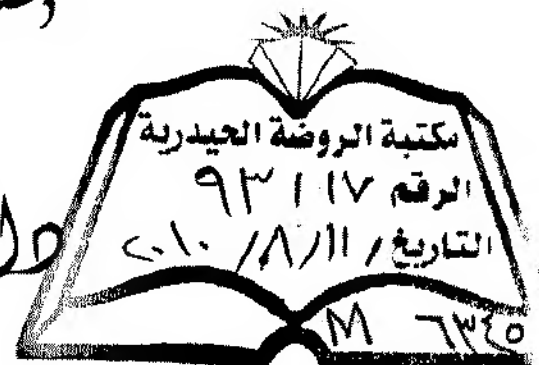 مكتبة الروضة الحيدرية
الرقم ٩٣١١٧
التاريخ / ١١ / ٨ / ٢٠١٠
M ٦٣٤٥